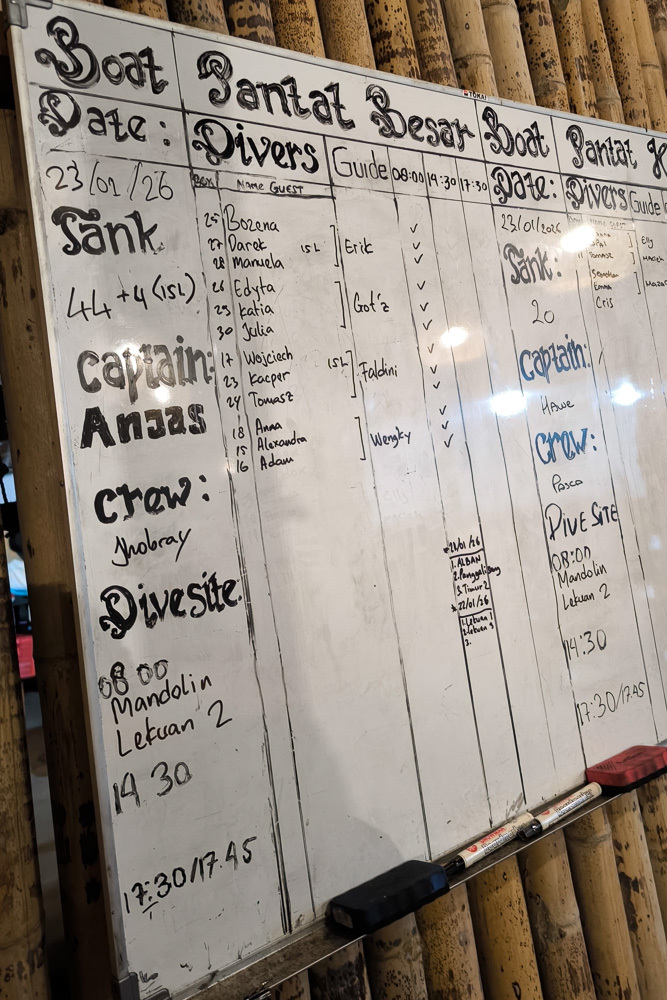 Boat Pantat Besar
Date: Divers Guide 08:00 14:30 17:30
23/01/26
BOX NAME GUEST
Tank
44 + 4 (15L)
Captain:
Anjas
Crew:
Jhobray
Divesite:
08 00
Mandolin
Lekuan 2
14 30
17:30/17.45
25 Bozena
27 Darek 15L Erik ✓
28 Manuela ✓
26 Edyta ✓
29 Katia Got'z ✓
30 Julia ✓
17 Wojciech 15L ✓
23 Kacper Faldini ✓
24 Tomasz ✓
18 Anna ✓
15 Alexandra Wengky ✓
16 Adam ✓
1. ALBAN
3. Timur 2
22/01/26
1. Lekuan
2. Lekuan 3
3.
TOMAI
Boat Pantat
Date: Divers Guide
23/01/2026
Tank:
20
Tomasz
Sebastian
Emma
Cris
Elly
Captain:
Hawe
Crew:
Pasco
DIVE SITE
08:00
Mandolin
Lekuan 2
14:30
17:30/17.45